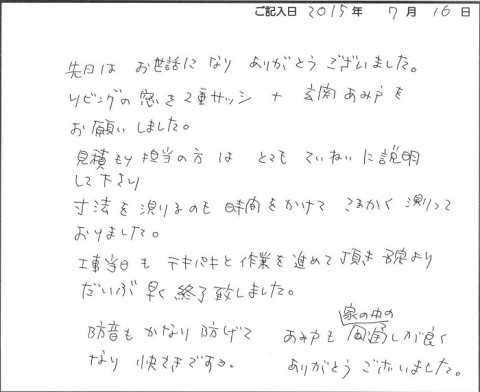 ご記入日 2015年 7月 16日
先日は お世話になり ありがとう ございました。
リビングの窓を2重サッシ + 玄関あみ戸を
お願いしました。
見積もり担当の方は とても ていねいに説明
して下さり
寸法を測りるのも 時間をかけて こまかく 測って
おりました。
工事当日も テキパキと作業を進めて頂き 予定より
だいぶ早く終了致しました。
防音もかなり防げて あみ戸も 家の中の風通しが良く
なり 快てきです。 ありがとう ございました。